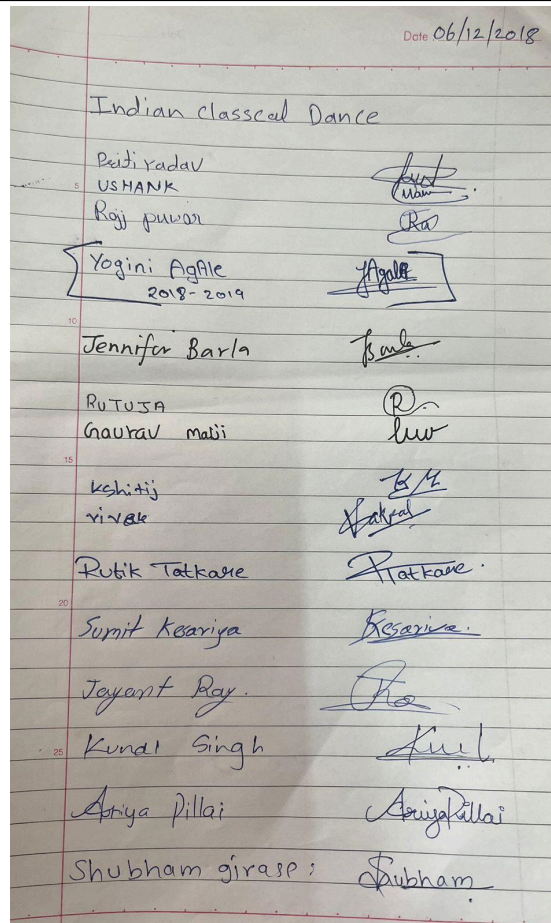 Date 06/12/2018
Indian Classcal Dance
Pritiyadav
5 USHANK
Rajj puwar Ra
Yogini AgAle YAgale
2018-2019
10
Jennifer Barla Barla
RUTUJA R
Gaurav malji
15
kshitij KM
vivek
Rutik Tatkare RTatkare.
20
Sumit Kesariya Kesariya.
Jayant Ray.
25 Kundl Singh
Apriya Pillai ApriyaPillai
Shubham girase: Shubham